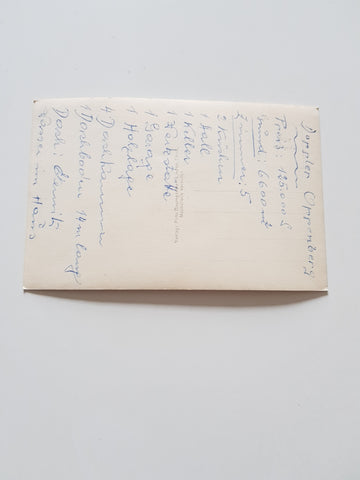 Doppler Oppenberg
Preis: 135.000 S
Grund: 6600 m²
Zimmer: 5
2 Küchen
1 Stall
1 Keller
1 Werkstätte
1 Garage
1 Holzlage
4 Dachkammern
1 Dachboden 14 m lang
Dach Eternit
Wasser im Haus